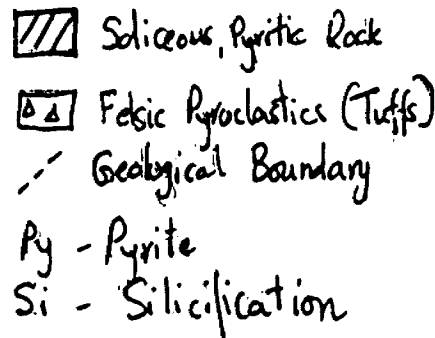 Siliceous, Pyritic Rock
Felsic Pyroclastics (Tuffs)
Geological Boundary
Py - Pyrite
Si - Silicification